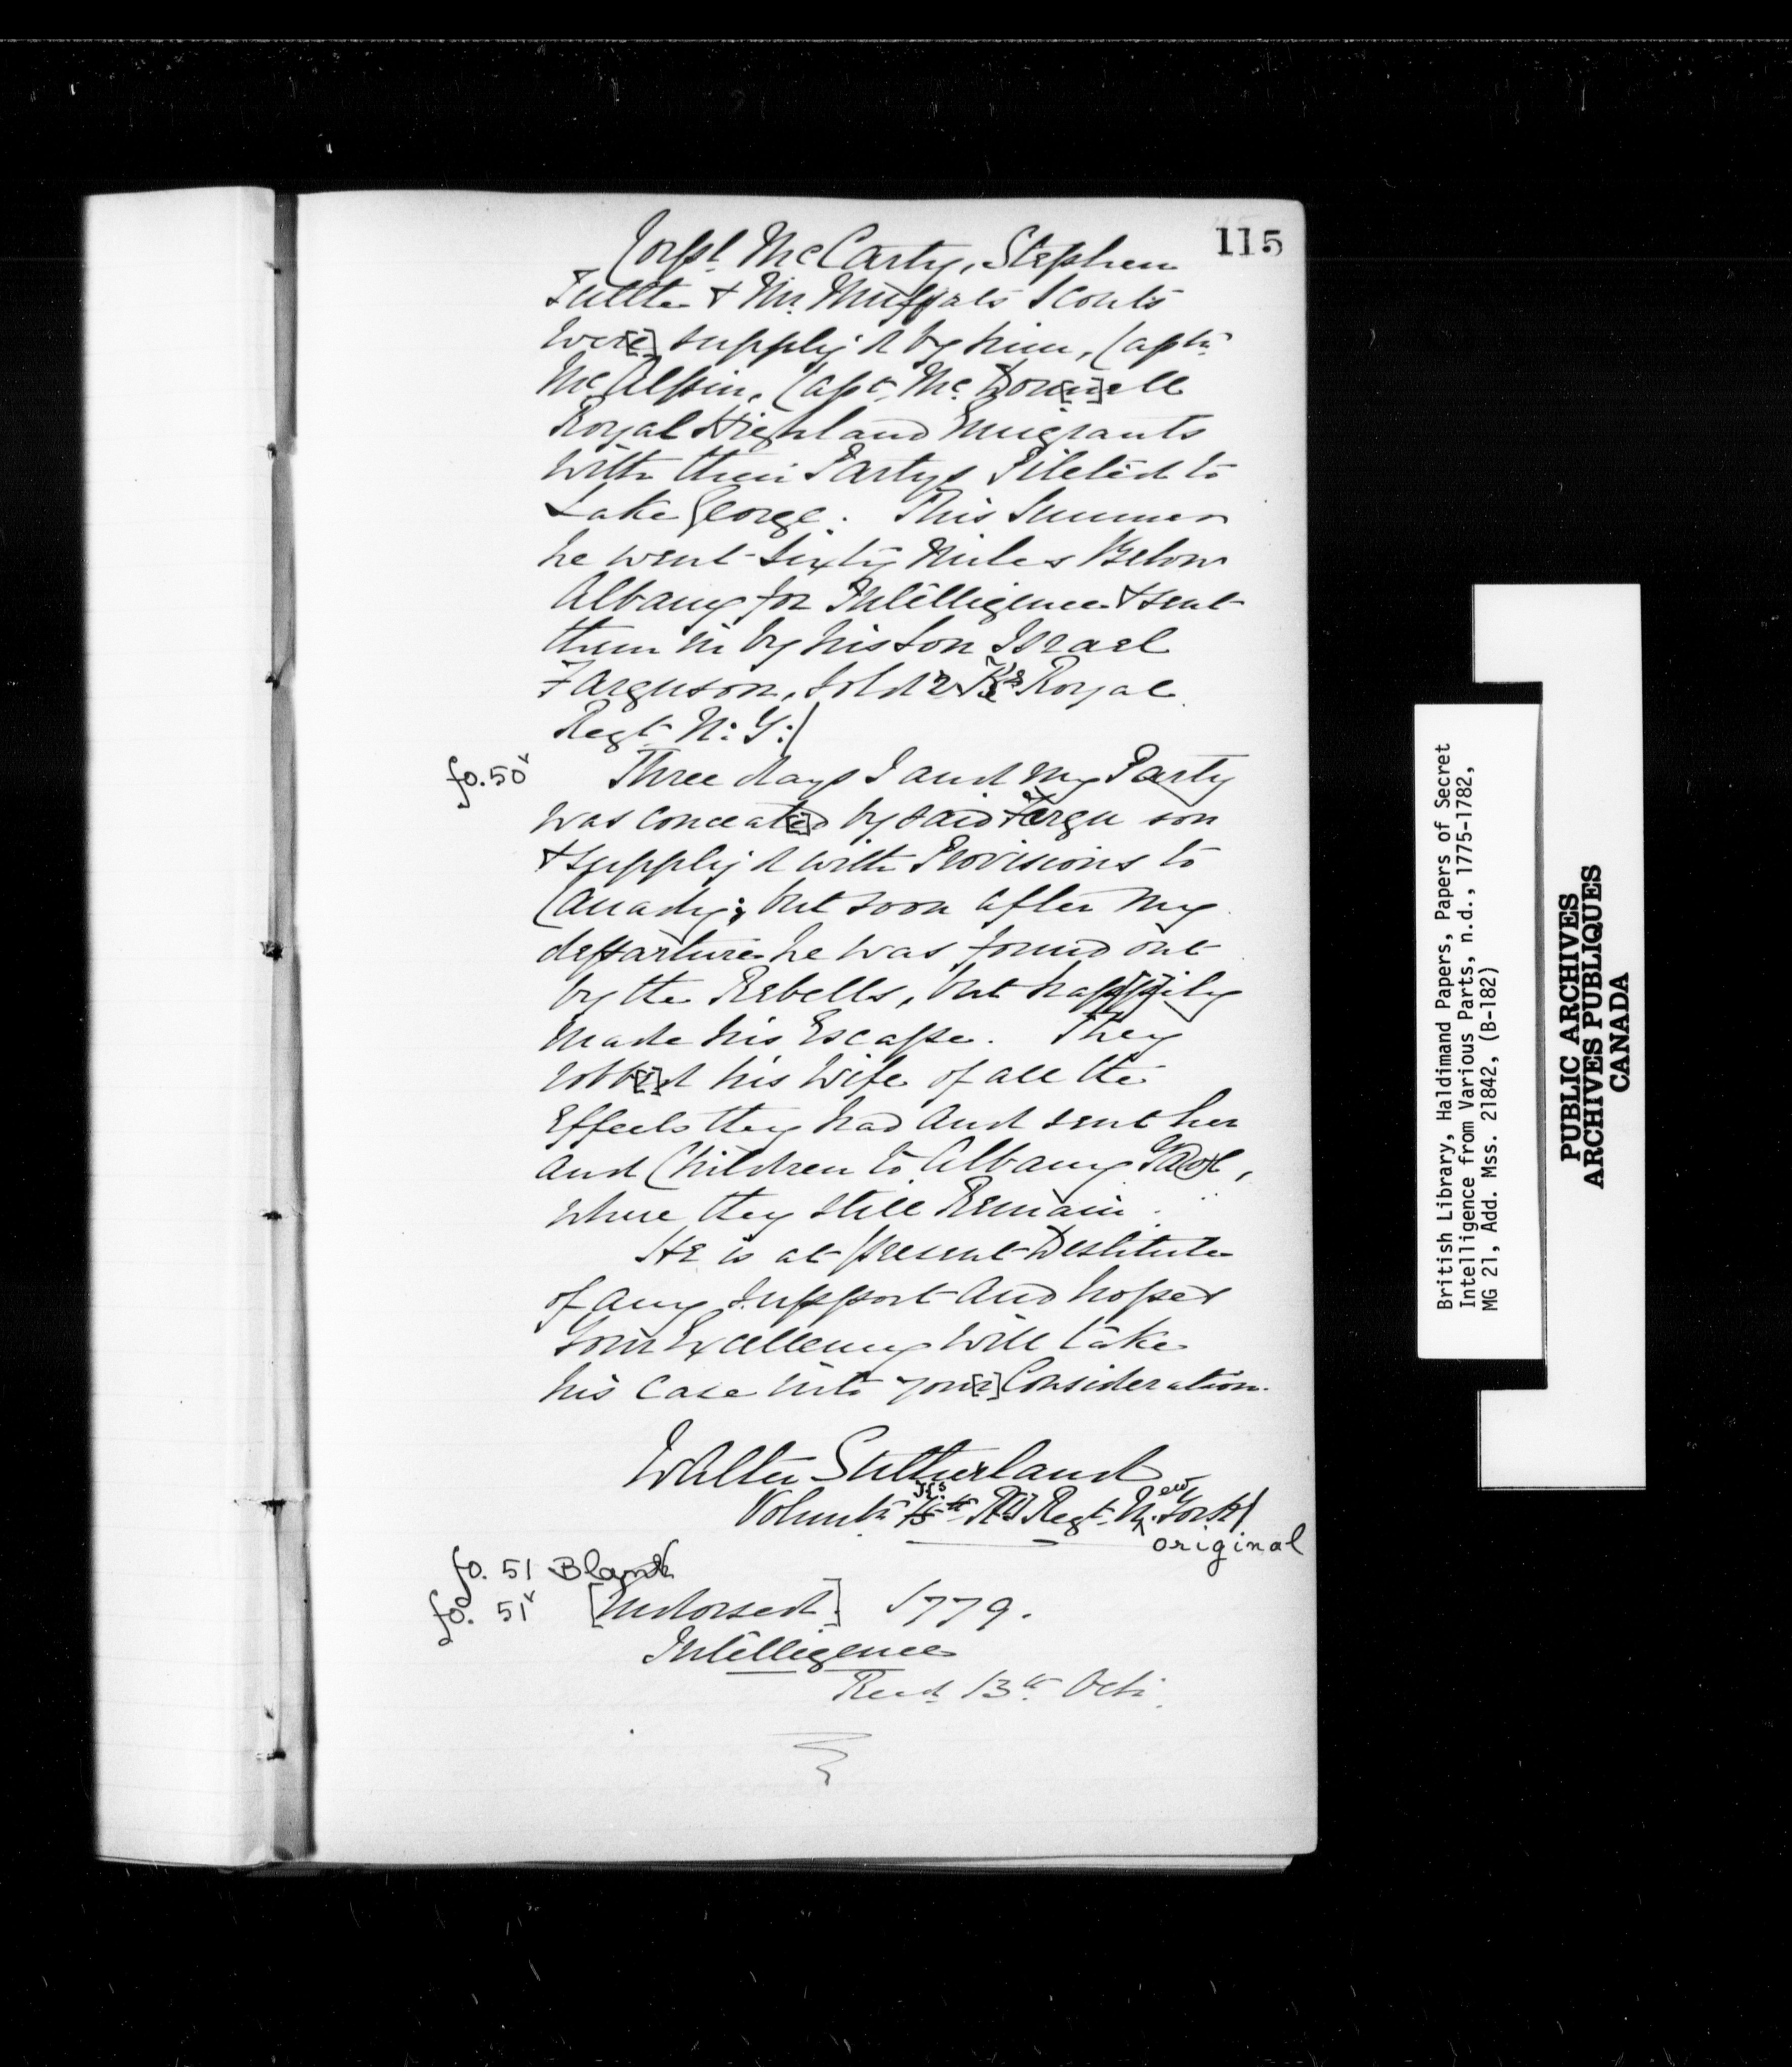 115
Corpl. McCarty, Stephen
Tuttle & Mr. Muffats Scouts
wer[e] supply'd by him, Captn
McAlpin, Capt. Mc Don[n]ell
Royal Highland Emigrants
with their Partys Piloted to
Lake George. This Summer
he went Sixty Miles Below
Albany for Intelligence & sent
them in by his Son Israel
Farguson, Sold'r Ks Royal
Regt. N: Y:/
fo. 50v Three days I and my Party
was conceal[e]d by said Farguson
& supply'd with Provisions to
Canady; but soon after my
departure he was found out
by the Rebells, but hap[p]ily
made his Escape. They
robb[e]d his Wife of all the
Effects they had and sent her
and Children to Albany Gaol,
where they still Remain.
He is at present Destitute
of any Support and hopes
Your Excellency will take
his Case into you[r] Consideration.
Walter Sutherland
Voluntr Ks R[l] Regt. New York/
original
fo. 51 Blank
fo. 51v [Endorsed] 1779.
Intelligence
Recd. 13th Octr.
British Library, Haldimand Papers, Papers of Secret
Intelligence from Various Parts, n.d., 1775-1782,
MG 21, Add. Mss. 21842, (B-182)
PUBLIC ARCHIVES
ARCHIVES PUBLIQUES
CANADA